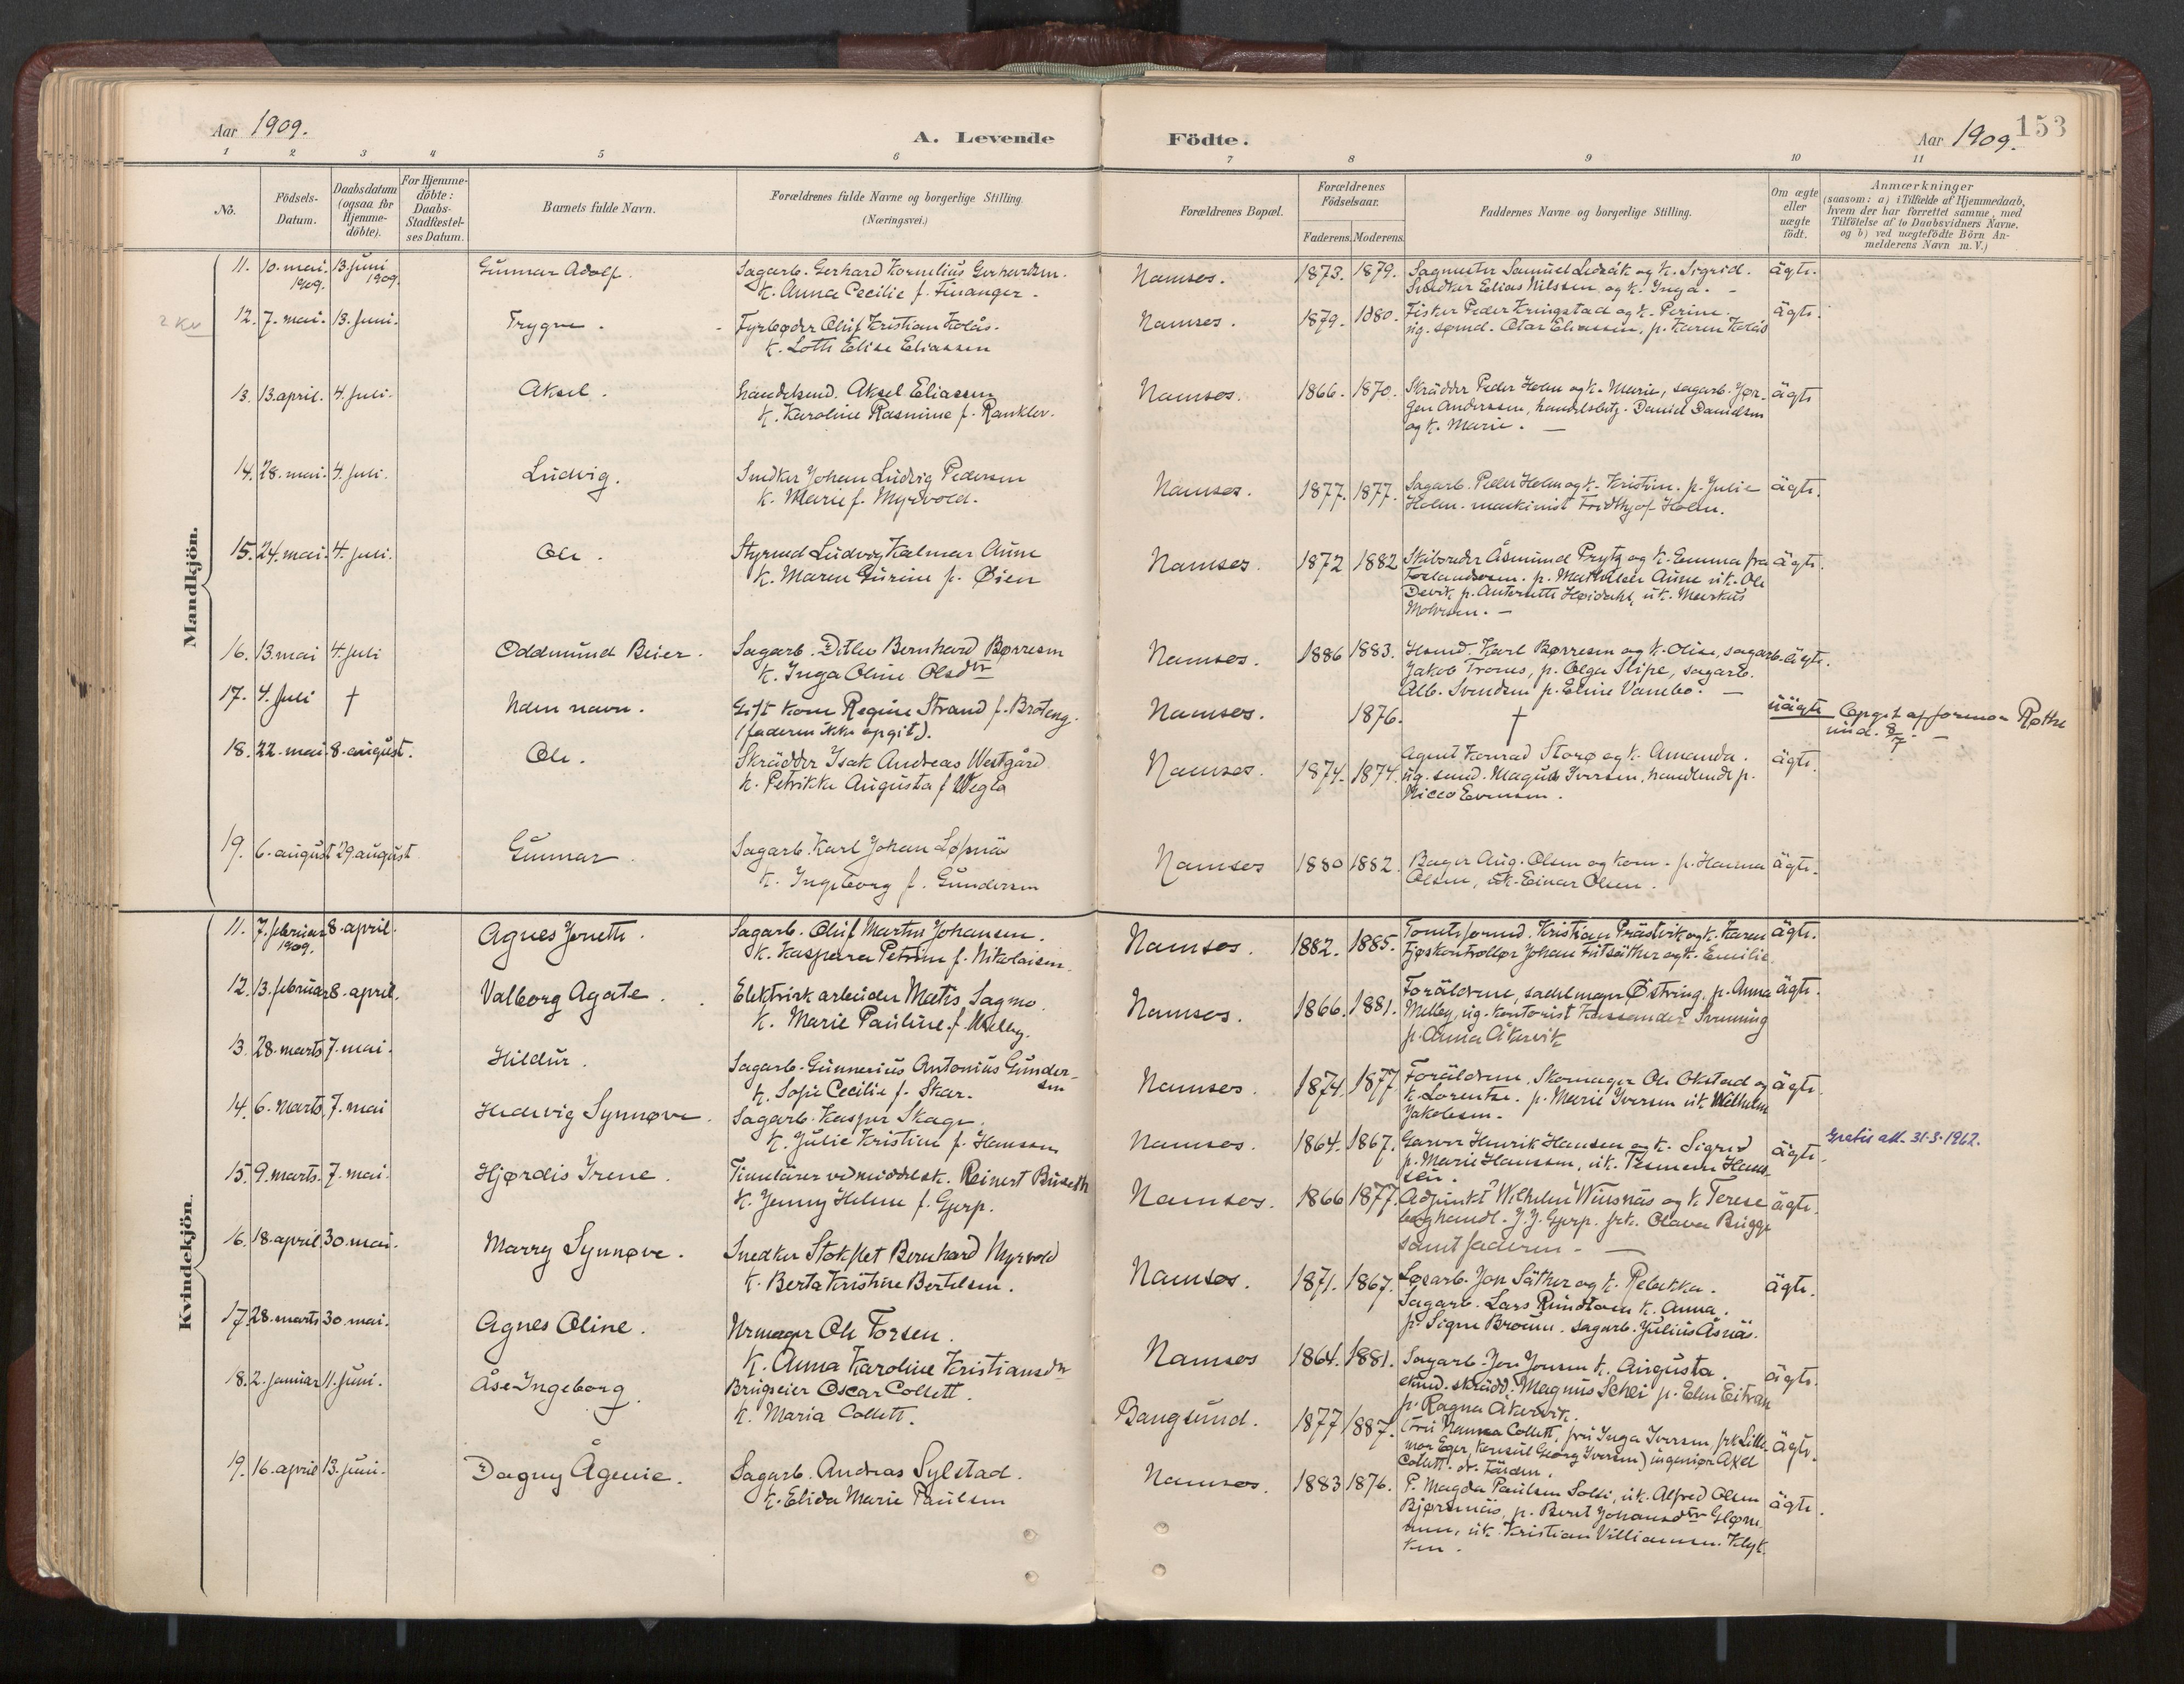 Aar 1909.
A. Levende Födte.
Aar 1909. 153
1 2 3 4 5 6 7 8 9 10 11
No.
Födsels-
Datum.
Daabsdatum
(ogsaa for
Hjemme-
döbte).
For Hjemme-
döbte:
Daabs-
Stadfæstel-
ses Datum.
Barnets fulde Navn.
Forældrenes fulde Navne og borgerlige Stilling.
(Næringsvei.)
Forældrenes Bopæl.
Forældrenes
Födselsaar.
Faderens. Moderens.
Faddernes Navne og borgerlige Stilling.
Om ægte
eller
uægte
födt.
Anmærkninger
(saasom: a) i Tilfælde af Hjemmedaab,
hvem der har forrettet samme, med
Tilföielse af to Daabsvidners Navne,
og b) ved uægtefödte Börn An-
melderens Navn m. V.)
Mandkjön.
11. 10. mai. 13. juni
1909. 1909.
Gunnar Adolf.
Sagarb. Gerhard Kornelius Gerhardsen.
K. Anna Cecilie f. Finanger.
Namsos.
1873. 1879.
Sagmester Samuel og K. Sigrid.
Snedker Elias Nilssen og K. Inga. -
ägte.
2 kv
12. 7. mai. 13. juni.
Trygve.
Fyrbøder Oluf Kristian Kolås.
K. Lotte Elise Eliassen
Namsos.
1879. 1880.
Fisker Peder Kringstad og K. Perine.
ug. sømd. Otar Eliassen, p. Karen Kolås
ägte.
13. 13. april. 4. juli.
Aksel.
handelsmd. Aksel Eliassen
K. Karoline Rasmine f. Ranklev.
Namsos.
1866. 1870.
Skrädder Peder Holm og K. Marie, sagarb. Jør-
gen Anderssen, handelsbetj. Daniel Danielsen
og K. Marie. -
ägte
14. 28. mai. 4. juli.
Ludvig.
Snedker Johan Ludvig Pedersen
K. Marie f. Myrvold.
Namsos.
1877. 1877.
Sagarb. Peder Holm og K. Kristine. p. Julie
Holm. maskinist Fridthjof Holm.
ägte.
15. 24. mai. 4. juli.
Ole.
Styrmd Ludvig Kalmar Aune
K. Maren Gurine f. Øien
Namsos.
1872 1882
Skibsreder Åsmund Prytz og K. Emma fra
p. Mathilde Aune uk. Ole
Devik p. Antonette Høidahl, uk. Markus
ägte.
16. 13. mai 4. juli
Oddmund Beier.
Sagarb. Ditlev Bernhard Børresen
K. Inga Oline Olsdtr
Namsos.
1886 1883.
Hsmd. Karl Børresen og K. Olise, sagarb.
Jakob Trones, p. Olga Slipe, sagarb.
Alb. Svendsen p. Eline Vambo. -
ägte.
17. 4. juli †
Uden navn.
Gift kone Regine Strand f. Brøteng.
(faderen ikke opgit).
Namsos.
1876.
†
uägte
Opgit af formor Røthe
und. 8/7. -
18. 22. mai 8. august.
Ole.
Skrädder Isak Andreas Westgård
K. Petrikke Augusta f. Wegla
Namsos.
1874. 1874.
Agent Konrad Storø og K. Amanda.
ug. smd. Magnus Iversen, handlende p.
Nicco Evensen.
ägte.
19. 6. august 29. august
Gunnar.
Sagarb. Karl Johan Løfsnäs
K. Ingeborg f. Gundersen
Namsos
1880 1882.
Bager Aug. Olsen og kone. p. Hanna
Olsen, uk. Einar Olsen.
ägte.
Kvindekjön.
11. 7. februar 8. april.
1909.
Agnes Jonette.
Sagarb. Oluf Martin Johansen.
K. Kaspara Petrine f. Nikolaisen.
Namsos.
1882. 1885.
Tomteformd. Kristian Prästvik og K. Karen
Fjøskontrollør Johan Fiitsäther og K. Emilie.
ägte.
12. 13. februar 8. april.
Valborg Agate.
Elektrisk arbeider Matis Sagmo.
K. Marie Pauline f. Melby.
Namsos.
1866. 1881.
Foräldrene, sadelmager Østring. p. Anna
Melby, ug. kontorist Kassander Svenning
p. Anna Åkervik
ägte.
13. 28. marts 7. mai.
Hildur.
Sagarb. Gunnerius Antonius Gunder-
sen
K. Sofie Cecilie f. Skar.
Namsos.
1874. 1877.
Foräldrene, Skomager Ole Okstad og
K. Lorentse. p. Marie Iversen uk Wilhelm
Jakobsen.
ägte.
14. 6. marts 7. mai
Hedevig Synnøve.
Sagarb. Kasper Skage.
K. Julie Kristine f. Hansen
Namsos.
1864. 1867.
Garver Henrik Hansen og K. Sigrid
p. Marie Hanssen, uk. Hans-
sen.
ägte.
Gratis att. 31.3.1962.
15. 9. marts. 7. mai.
Hjørdis Irene.
Timelärer ved middelsk. Reinert Buseth
K. Jenny Helene f. Gjerp.
Namsos.
1866 1877.
Adjunkt Wilhelm Wiisnäs og K. Terese
boghandl. J. J. Gjerp. frk. Olava Brügge
samt faderen. -
ägte.
16. 18. april 30. mai.
Marry Synnøve.
Snedker Stokflet Bernhard Myrvold
K. Berta Kristine Bertelsen.
Namsos.
1871. 1867.
Løsarb. Jon Säther og K. Rebekka.
Sagarb. Lars K. Anna.
p. Signe Broum. sagarb. Julius Åsnäs.
ägte.
17. 28. marts 30. mai.
Agnes Oline.
Urmager Ole Forsen.
K. Anna Karoline Kristiansdtr
Namsos
1864. 1881.
Sagarb. Jon Jonsen K. Augusta.
skrädd. Magnus Schei p. Elen Eitran
p. Ragna Åkervik.
ägte.
18. 2. januar 11. juni.
Åse Ingeborg.
Brugseier Oscar Collett.
K. Maria Collett.
Bangsund.
1877 1887.
(Fru Nanna Collett, fru Inga Iversen, frk Lille-
mor Eger, konsul Georg Iversen) ingeniør Axel
Collett. dr.
ägte.
19. 16. april 13. juni.
Dagny Ågenie.
Sagarb. Andreas Sylstad.
K. Elida Marie Paulsen
Namsos.
1883 1876.
P. Magda Paulsen Solli, uk. Alfred Olsen
Bjørnnäs, p. Beret Johansdtr
uk. Kristian Villiamsen. Klyk-
ken.
ägte.